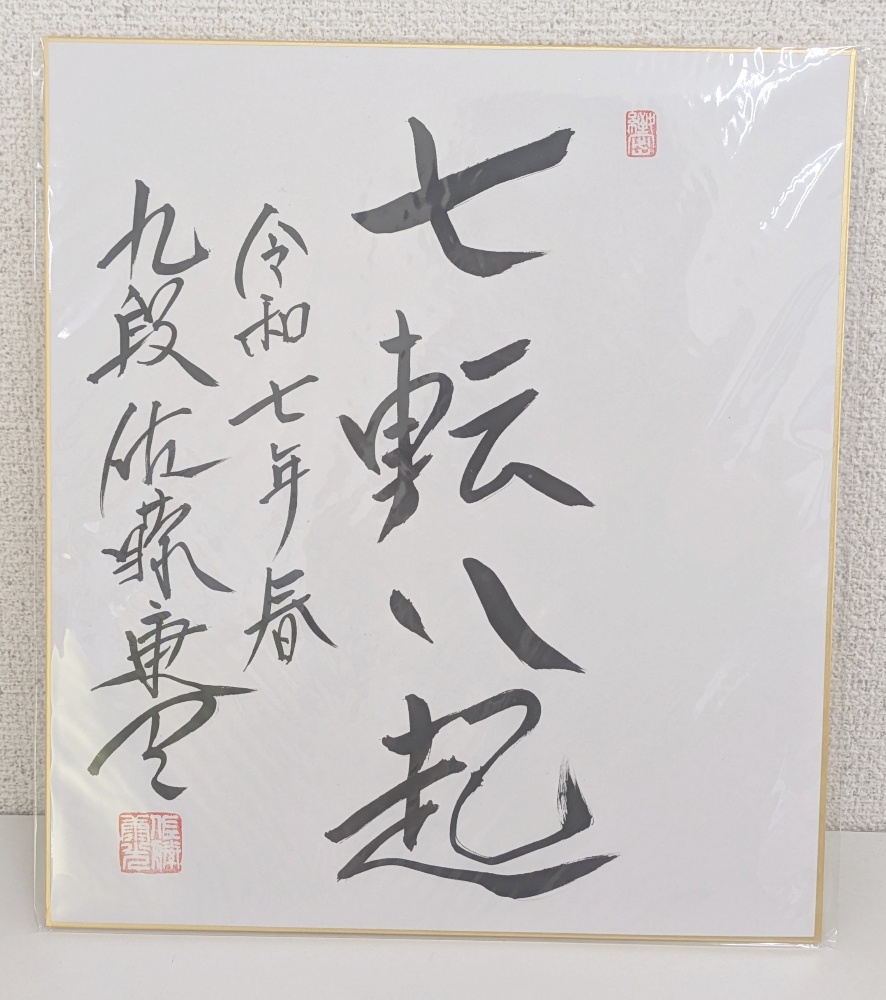 七転八起
令和七年春
九段 佐藤康光
佐藤康光